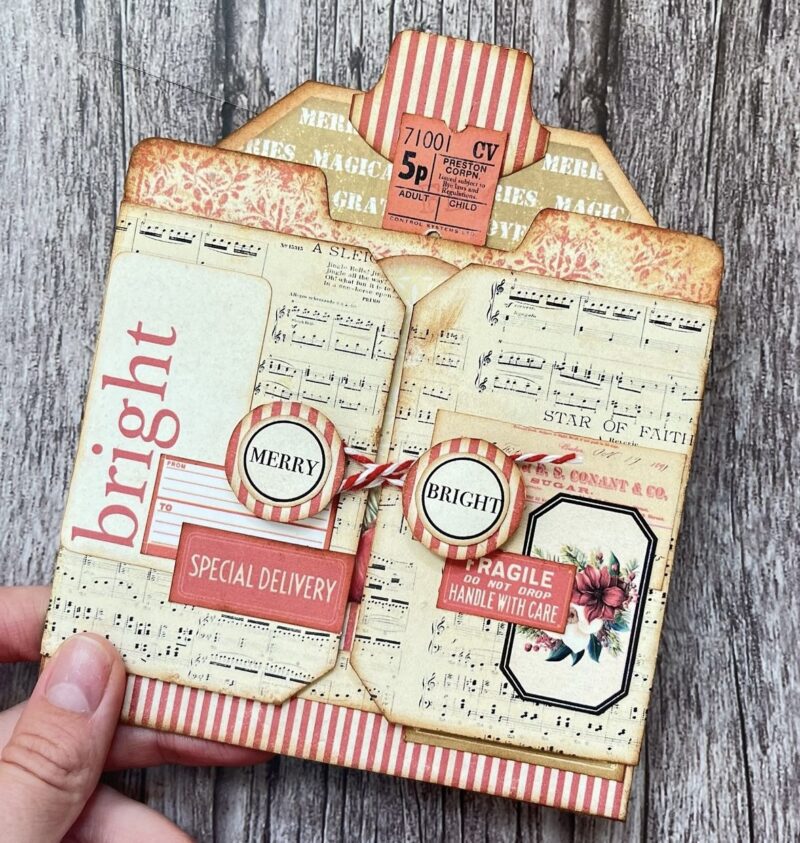 MERR
RIES MAGICA
GRAT
MERR
RIES, MAGIC
OYE
71001 CV
5p
PRESTON
CORPN.
Issued subject to
the laws and
Regulations.
ADULT
CHILD
CONTROL SYSTEMS LTD.
A SLEIG
Jingle Bells!
Jingle all the way!
Oh! what fun it is to
in a one-horse open
PRIMO
STAR OF FAITH
A Reverie
bright
MERRY
BRIGHT
FROM
TO
SPECIAL DELIVERY
E. S. CONANT & CO.
SUGAR.
FRAGILE
DO NOT DROP
HANDLE WITH CARE